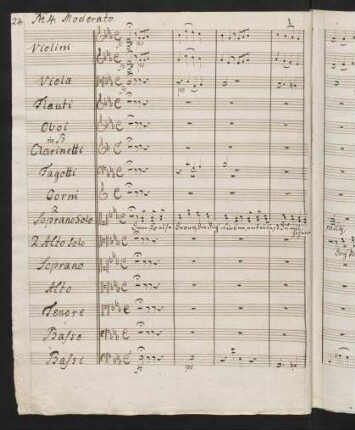 24 No. 4. Moderato
Violini
Viola
Flauti
Oboi
in B
Clarinetti
Fagotti
Corni
2
Soprano Solo
2 Alto Solo
Soprano
Alto
Tenore
Basso
Bassi